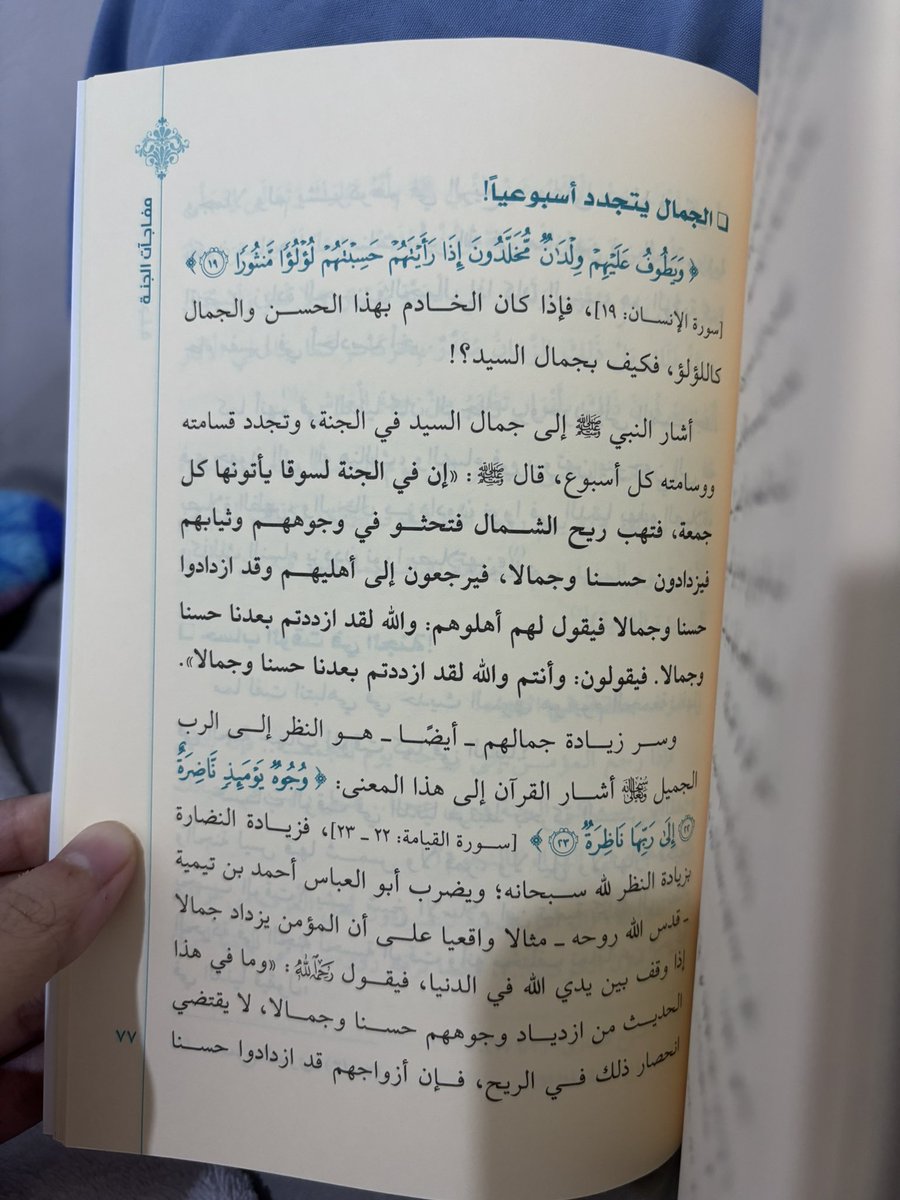 مفاجآت الجنة
□ الجمال يتجدد أسبوعياً!
﴿ وَيَطُوفُ عَلَيْهِمْ وِلْدَانٌ مُّخَلَّدُونَ إِذَا رَأَيْتَهُمْ حَسِبْتَهُمْ لُؤْلُؤًا مَّنثُورًا ١٩ ﴾
[سورة الإنسان: ١٩]، فإذا كان الخادم بهذا الحسن والجمال
كاللؤلؤ، فكيف بجمال السيد؟!
أشار النبي ﷺ إلى جمال السيد في الجنة، وتجدد قسامته
ووسامته كل أسبوع، قال ﷺ: «إن في الجنة لسوقا يأتونها كل
جمعة، فتهب ريح الشمال فتحثو في وجوههم وثيابهم
فيزدادون حسنا وجمالا، فيرجعون إلى أهليهم وقد ازدادوا
حسنا وجمالا فيقول لهم أهلوهم: والله لقد ازددتم بعدنا حسنا
وجمالا. فيقولون: وأنتم والله لقد ازددتم بعدنا حسنا وجمالا».
وسر زيادة جمالهم ـ أيضًا ـ هو النظر إلى الرب
الجميل أشار القرآن إلى هذا المعنى: ﴿ وُجُوهٌ يَوْمَئِذٍ نَّاضِرَةٌ
٢٢ إِلَىٰ رَبِّهَا نَاظِرَةٌ ٢٣ ﴾ [سورة القيامة: ٢٢ ـ ٢٣]، فزيادة النضارة
بزيادة النظر لله سبحانه؛ ويضرب أبو العباس أحمد بن تيمية
ـ قدس الله روحه ـ مثالا واقعيا على أن المؤمن يزداد جمالا
إذا وقف بين يدي الله في الدنيا، فيقول رحمه الله: «وما في هذا
الحديث من ازدياد وجوههم حسنا وجمالا، لا يقتضي
انحصار ذلك في الريح، فإن أزواجهم قد ازدادوا حسنا
٧٧